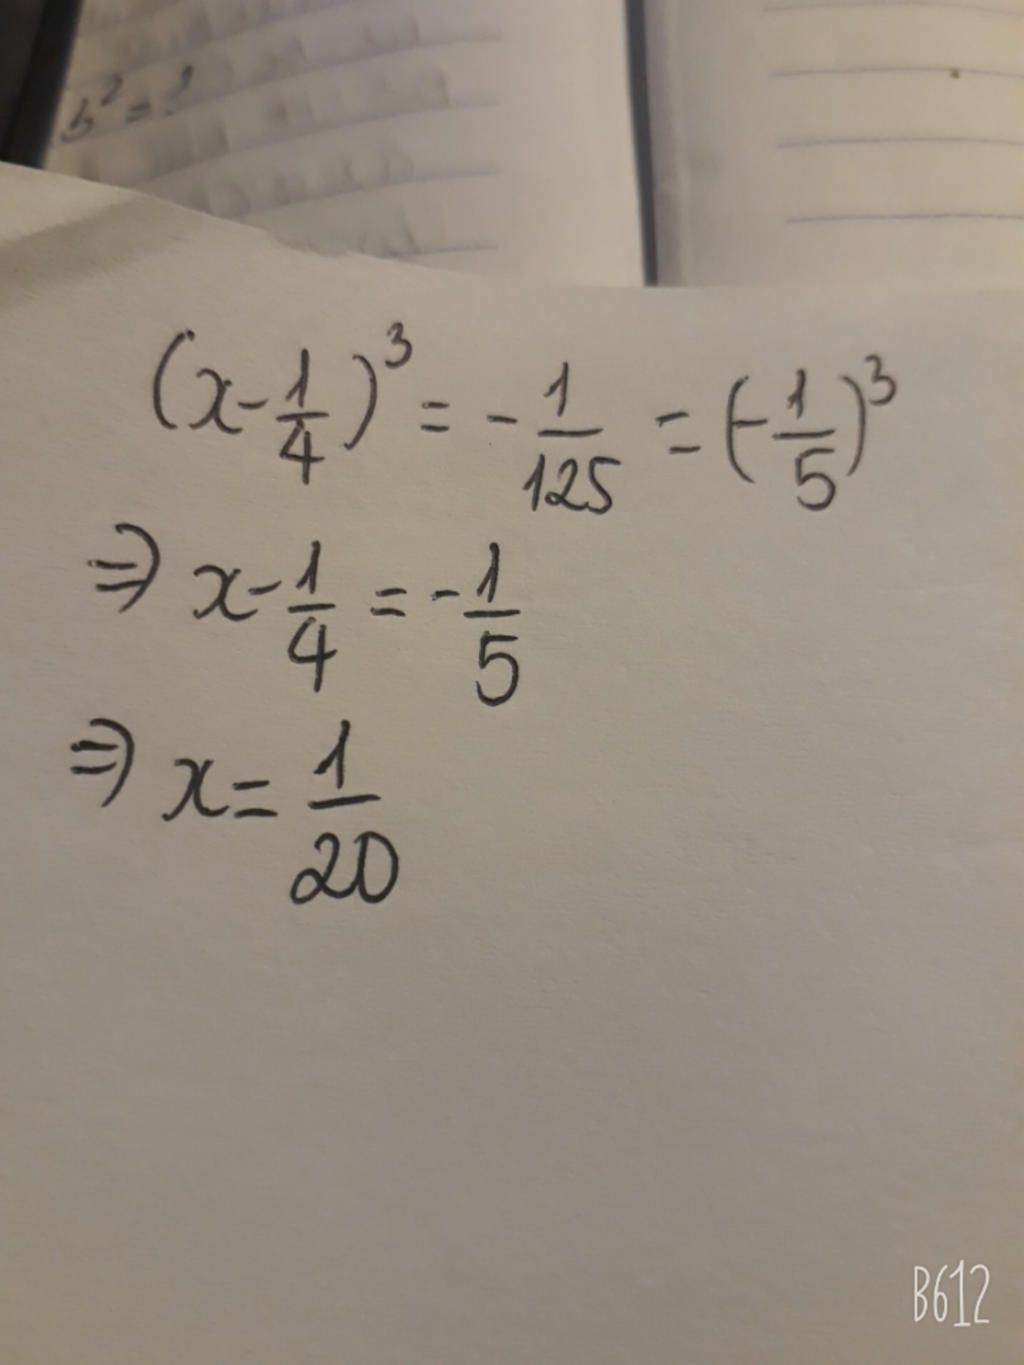 b² = ?
(x - 1/4)³ = - 1/125 = (- 1/5)³
⇒ x - 1/4 = - 1/5
⇒ x = 1/20
B612